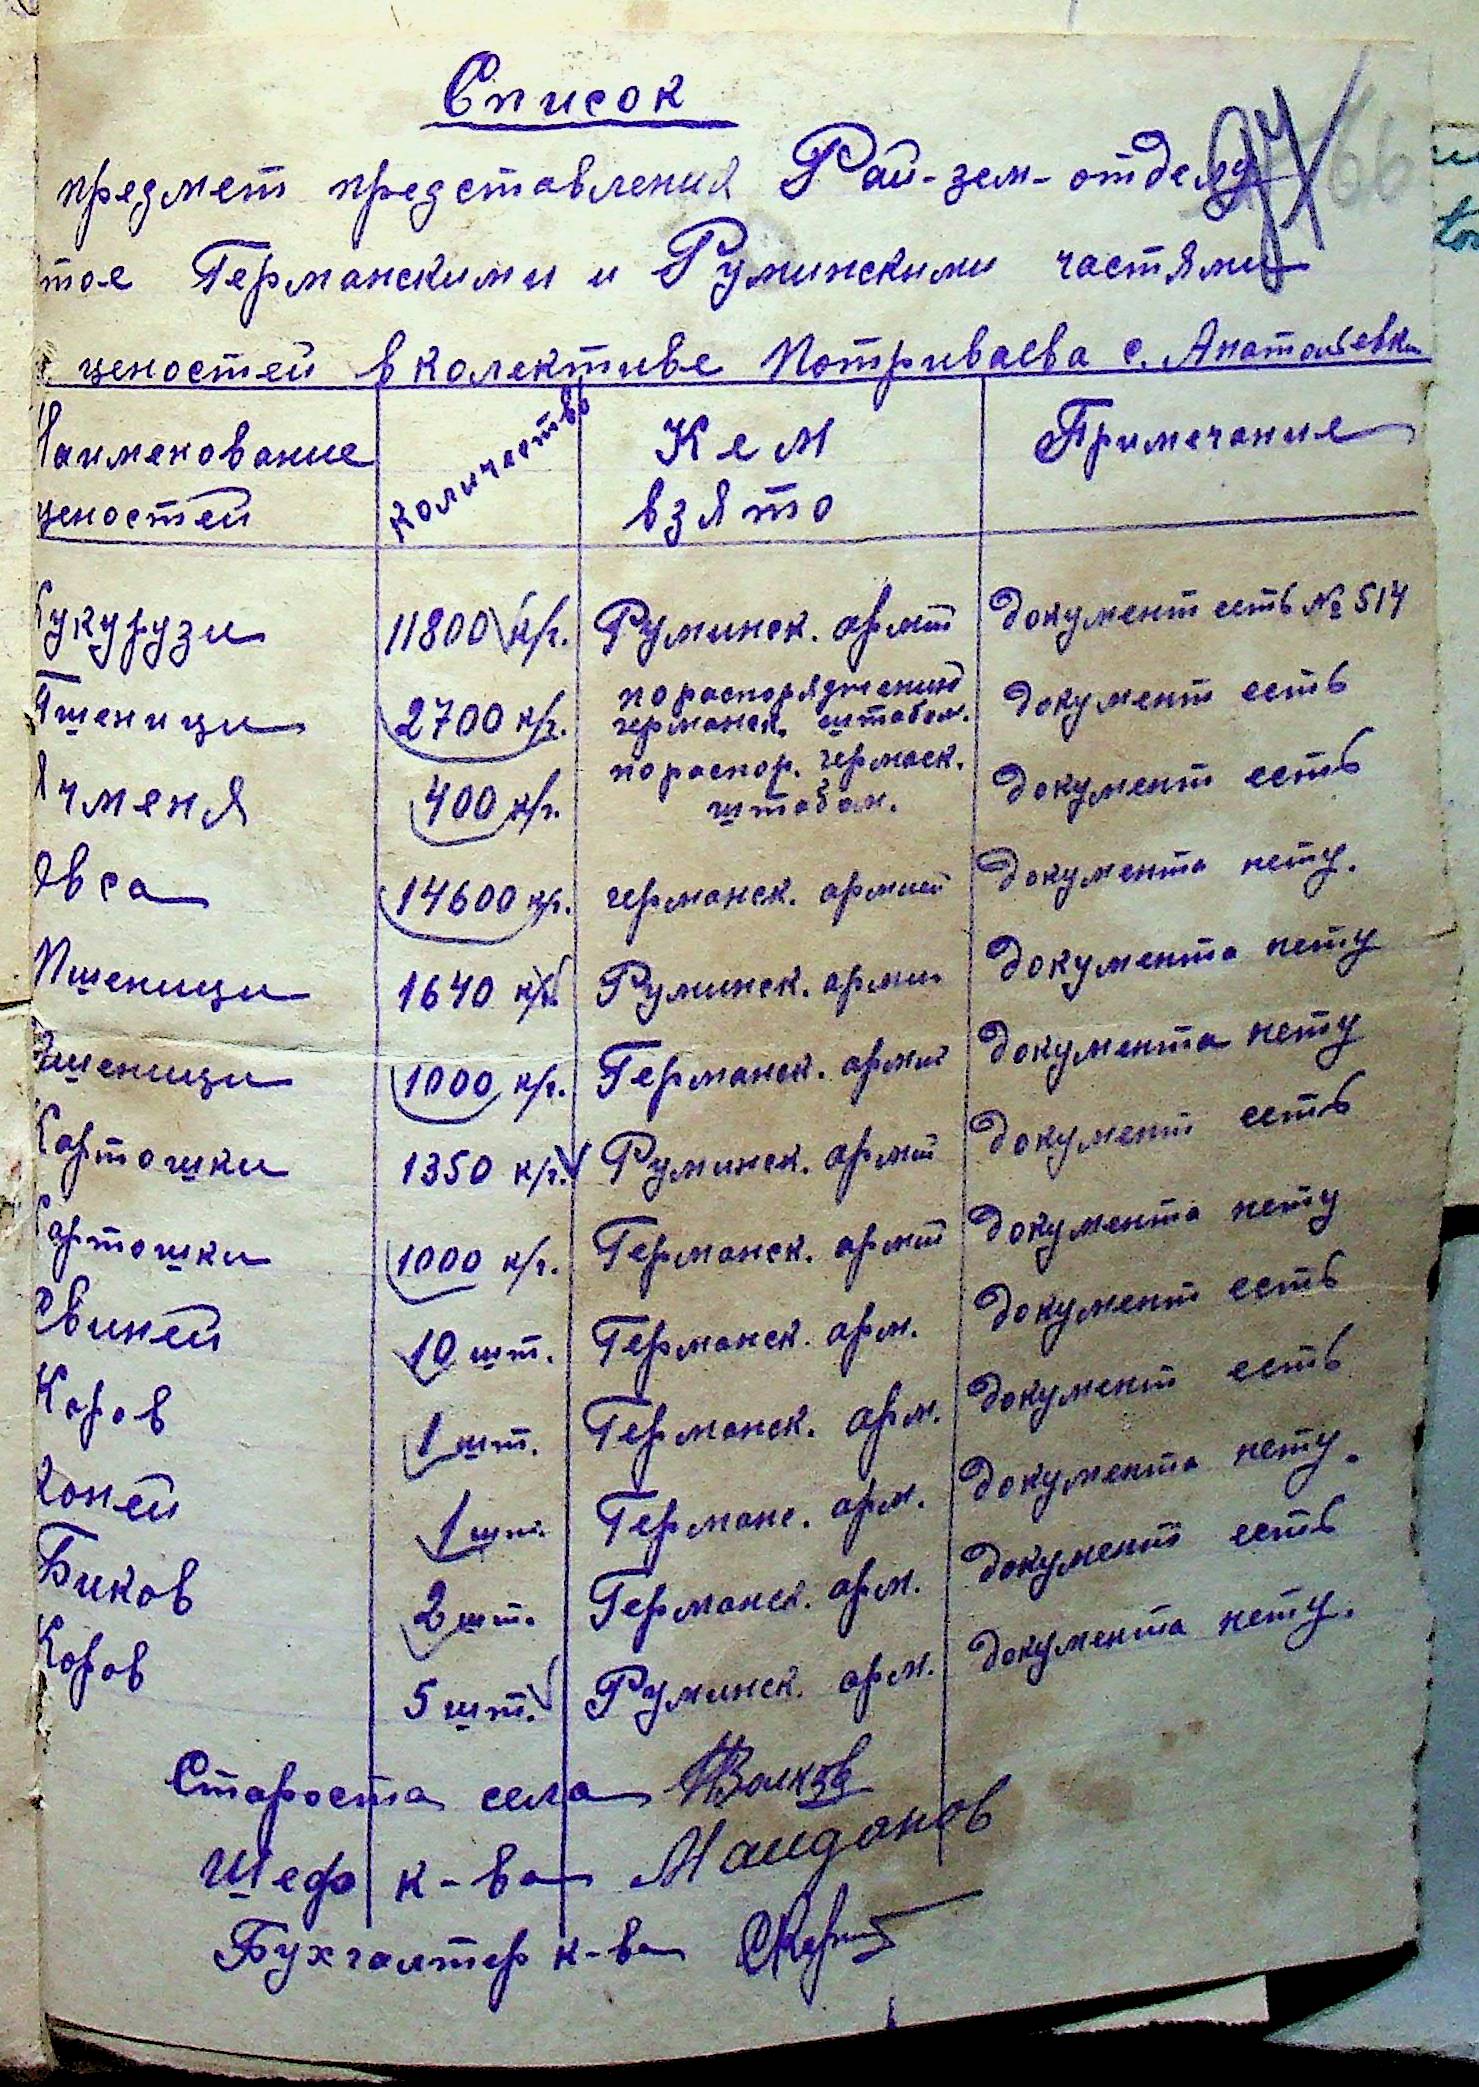 Список
предмет представления Рай-зем-отделу
тое Германскими и Руминскими частями
ценостей в колективе Потриваева с. Анатольевка
Наименование ценостей Количество Кем взято Примечание
Кукурузи 11800 к/г. Руминск. армій документ есть № 514
Пшеници 2700 к/г. по распоряджений германск. штабом. документ есть
Ячменя 400 к/г. по распор. гермаск. штабом. документ есть
Овса 14600 к/г. германск. армией документа нету.
Пшеници 1640 к/г. Руминск. арми документа нету
Пшеници 1000 к/г. Германск. армій документа нету
Картошки 1350 к/г. Руминск. армій документ есть
Картошки 1000 к/г. Германск. армій документа нету
Свиней 10 шт. Германск. арм. документ есть
Коров 1 шт. Германск. арм. документ есть
Коней 1 шт. Германс. арм. документа нету.
Биков 2 шт. Германск. арм. документ есть
Коров 5 шт. Руминск. арм. документа нету.
Староста села Волков
Шеф к-ва Маиданов
Бухгалтер к-ва